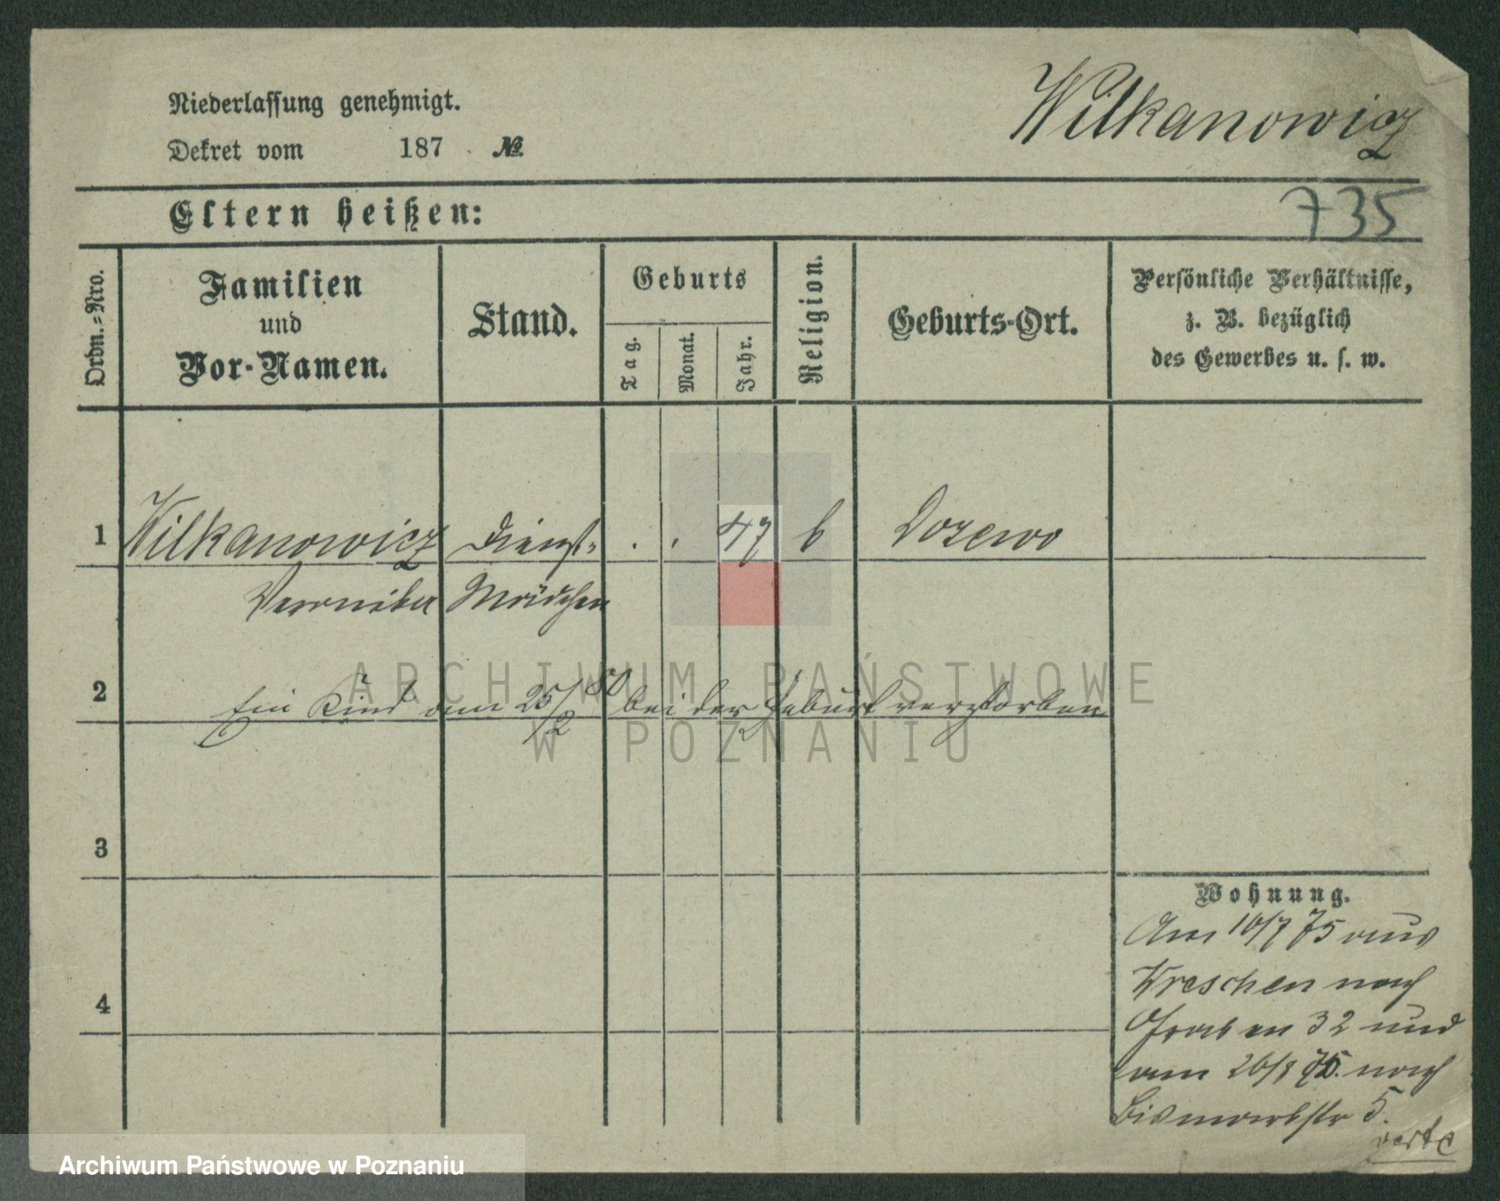 Niederlassung genehmigt.
Dekret vom 187 . №
Wilkanowicz
735
Eltern heißen:
Ordn.-Nro.
Familien
und
Vor-Namen.
Stand.
Geburts
Tag.
Monat.
Jahr.
Religion.
Geburts-Ort.
Persönliche Verhältnisse,
z. B. bezüglich
des Gewerbes u. s. w.
1 Wilkanowicz Dienst- . . 47 k
Veronika Mädchen
2 Ein Kind am 25/2 80 bei der Geburt verstorben
3
4
Wohnung.
Am 10/7 75 aus
Wreschen nach
Graben 32 und
am 26/8 75. nach
Bismarckstr 5.
verte
ARCHIWUM PAŃSTWOWE
W POZNANIU
Archiwum Państwowe w Poznaniu